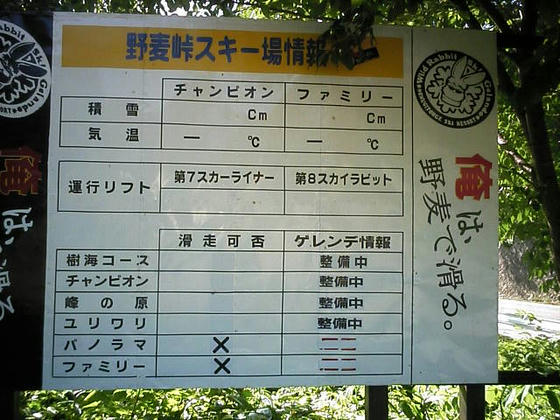 野麦峠スキー場情報
チャンピオン ファミリー
積雪 Cm Cm
気温 ー ℃ ー ℃
運行リフト 第7スカーライナー 第8スカイラビット
滑走可否 ゲレンデ情報
樹海コース 整備中
チャンピオン 整備中
峰の原 整備中
ユリワリ 整備中
パノラマ ×
ファミリー ×
Wild Rabbit Ski Grounds
俺は、
野麦で滑る。
俺は、滑る